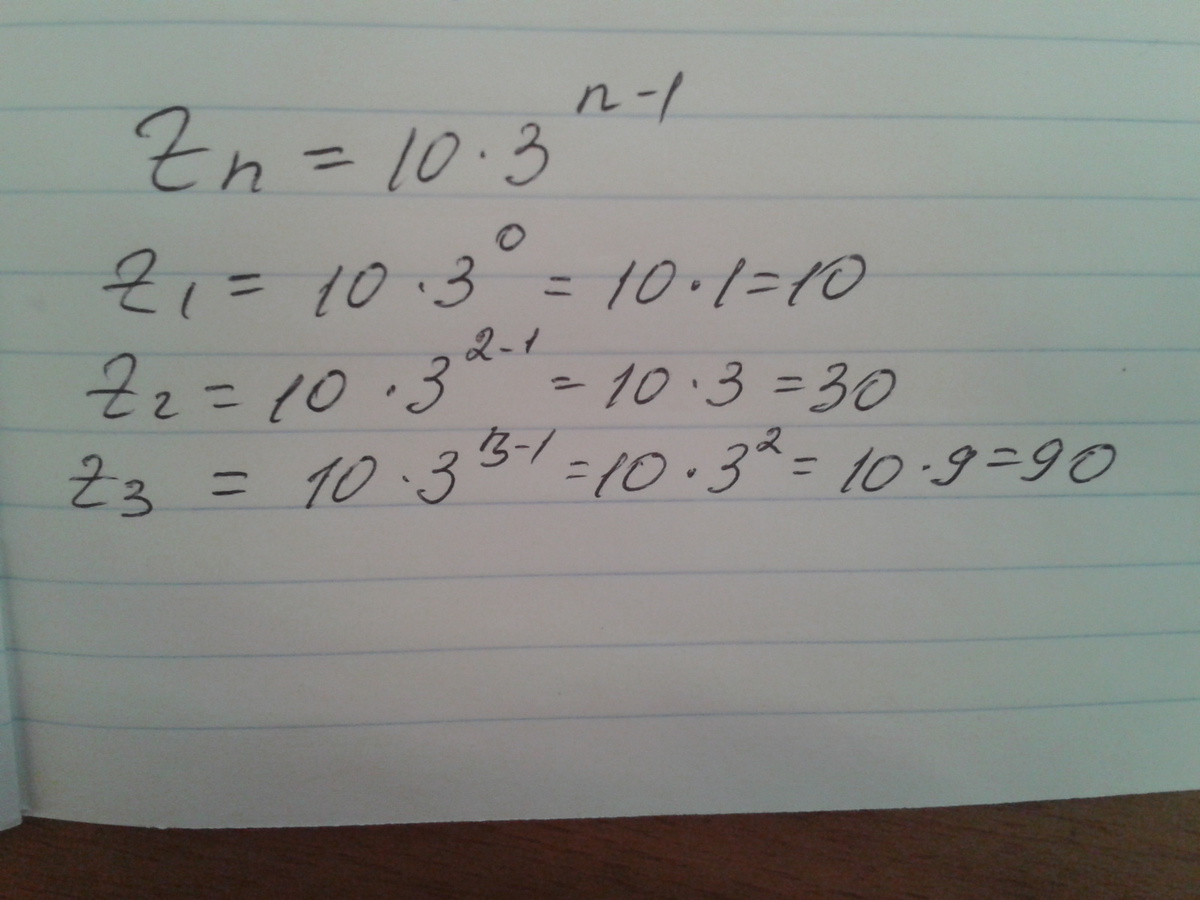 Zn = 10 · 3^(n-1)
Z1 = 10 · 3^0 = 10 · 1 = 10
Z2 = 10 · 3^(2-1) = 10 · 3 = 30
Z3 = 10 · 3^(3-1) = 10 · 3^2 = 10 · 9 = 90